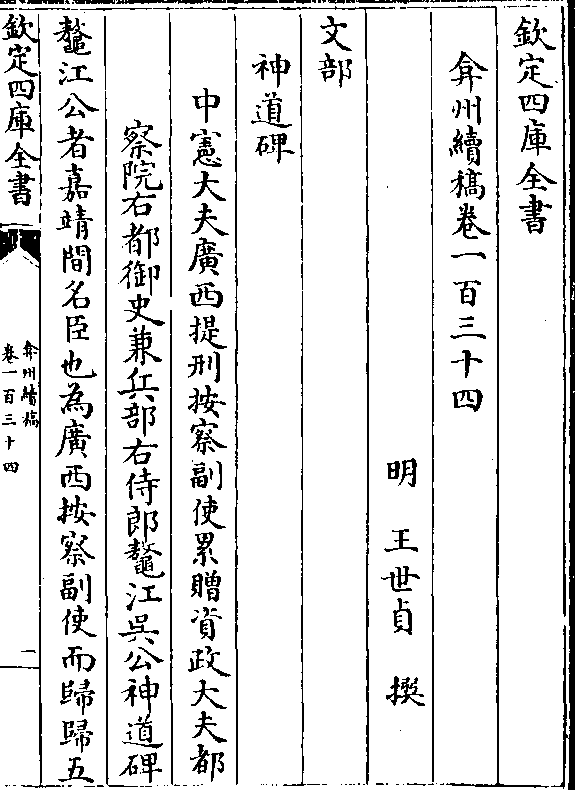 欽定四庫全書
弇州續稿卷一百三十四
明 王世貞 撰
文部
神道碑
中憲大夫廣西提刑按察副使累贈資政大夫都
察院右都御史兼兵部右侍郎鼇江吳公神道碑
鼇江公者嘉靖間名臣也為廣西按察副使而歸歸五
欽定四庫全書
弇州續稿
卷一百三十四
一